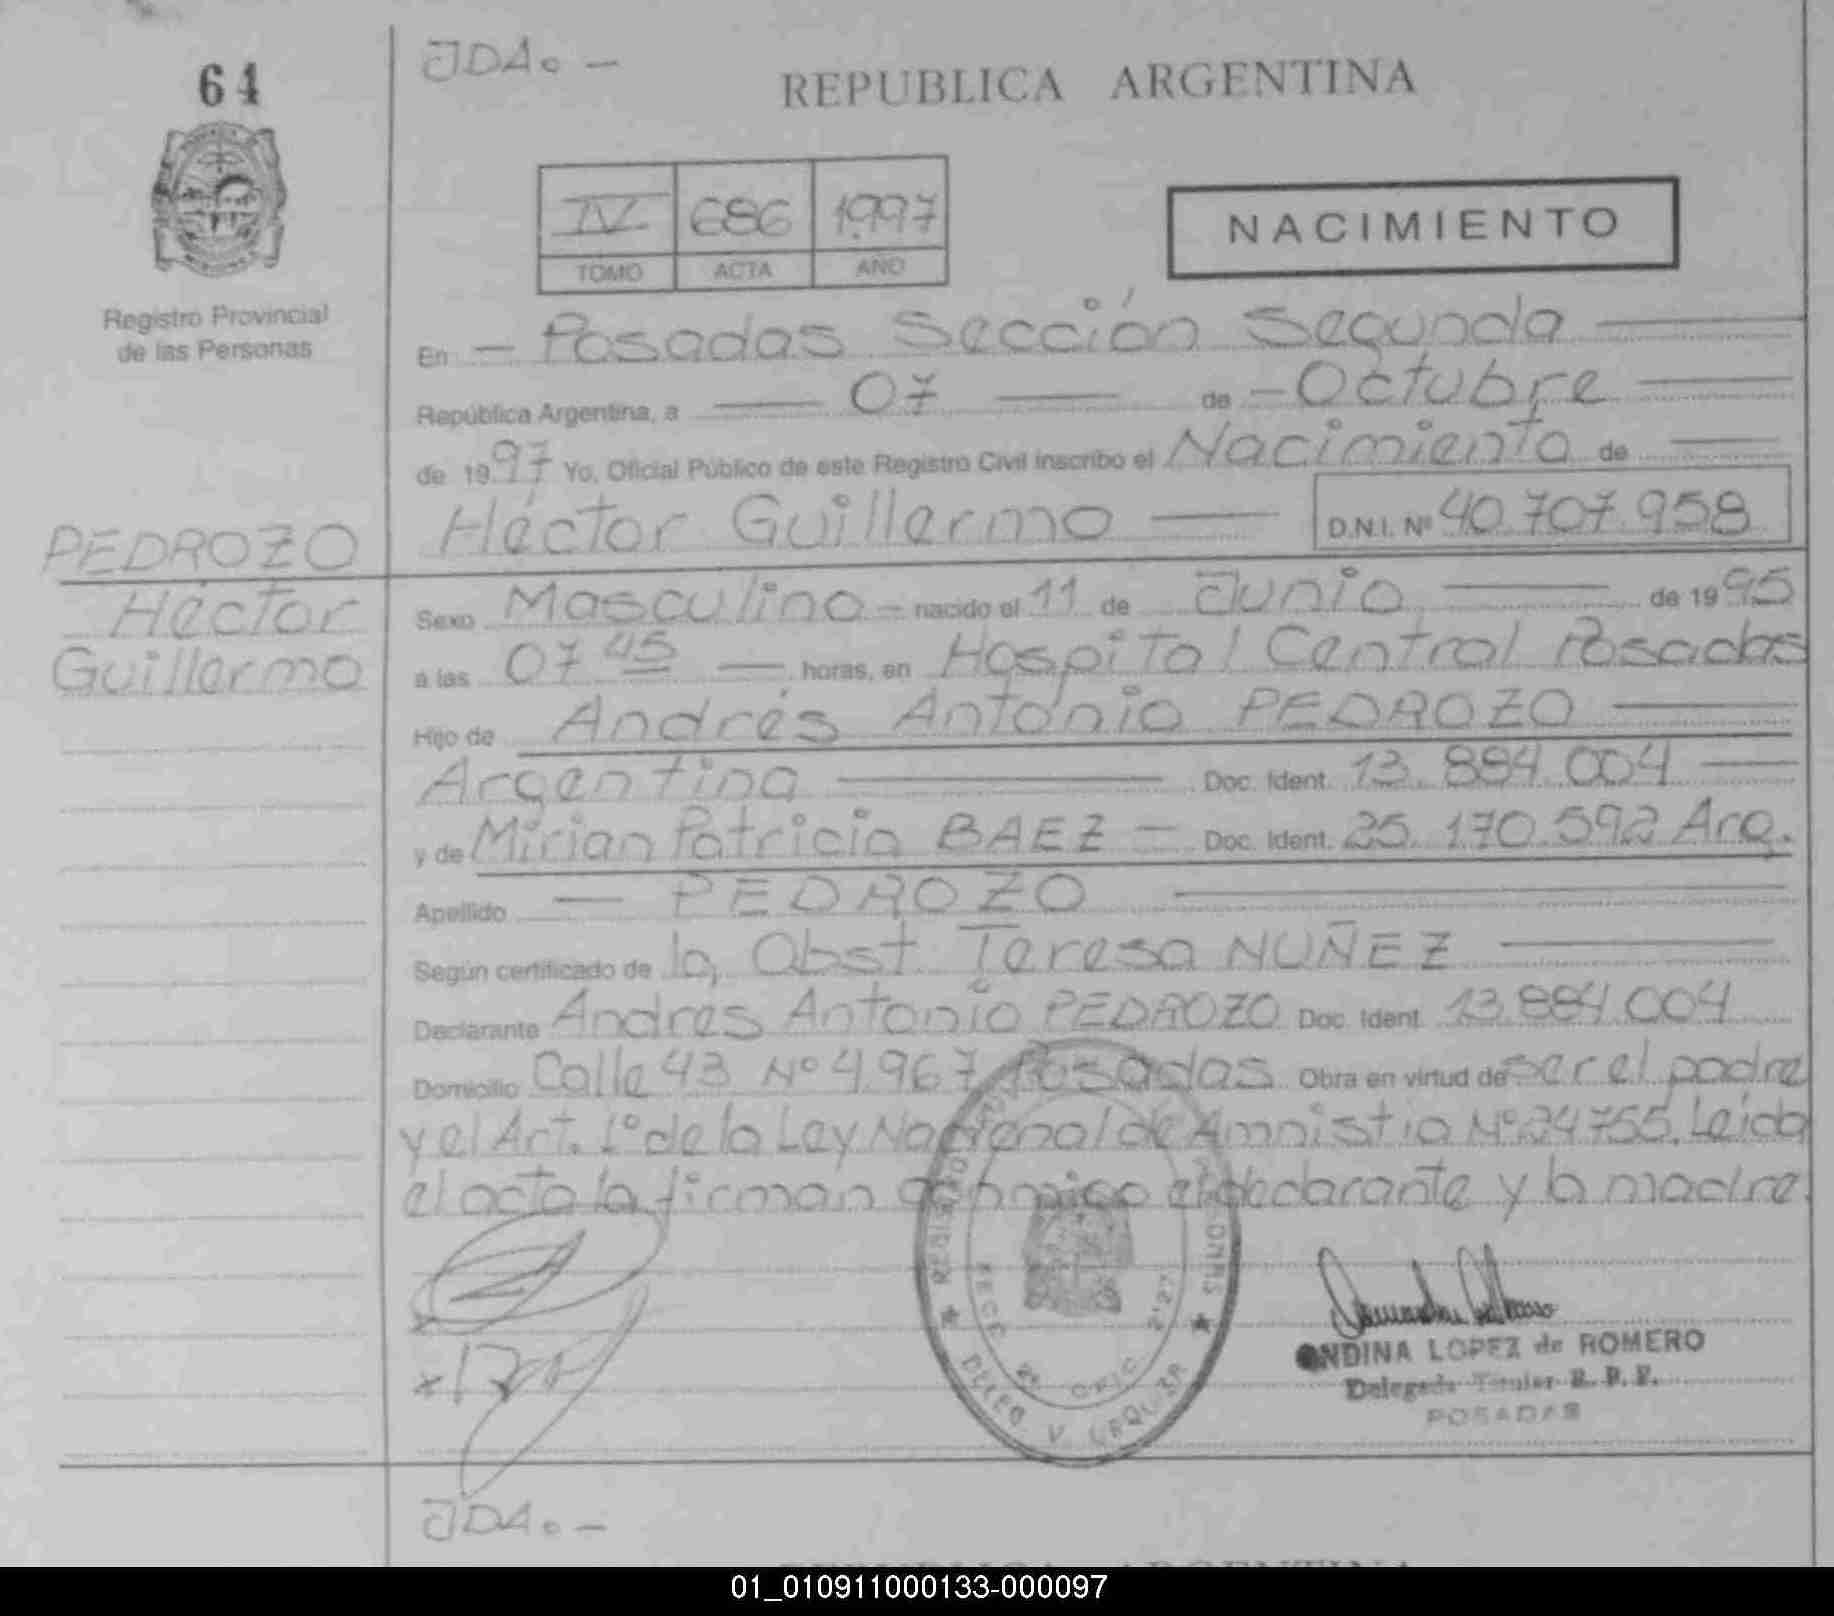 64
JDA. -
REPUBLICA ARGENTINA
IV 686 1.997
TOMO ACTA AÑO
NACIMIENTO
Registro Provincial
de las Personas
En - Posadas Sección Segunda
República Argentina, a 07 de - Octubre
de 1997 Yo, Oficial Público de este Registro Civil inscribo el Nacimiento de
Héctor Guillermo D.N.I. Nº 40.707.958
PEDROZO
Héctor
Guillermo
Sexo Masculino - nacido el 11 de Junio de 1995
a las 07 45 horas, en Hospital Central Posadas
Hijo de Andrés Antonio PEDROZO
Argentina Doc. Ident. 13.884.004
y de Mirian Patricia BAEZ - Doc. Ident. 25.170.592 Arg.
Apellido - PEDROZO
Según certificado de la, Obst. Teresa NUÑEZ
Declarante Andrés Antonio PEDROZO Doc. Ident. 13.884.004
Domicilio Calle 43 Nº 4.967 Posadas Obra en virtud de ser el padre
y el Art. 1º de la Ley Nacional de Amnistia Nº 24755. Leida
el acta la firman conmigo el declarante y la madre.
ONDINA LOPEZ de ROMERO
Delegada Titular R. P. P.
POSADAS
JDA. -
REPUBLICA ARGENTINA
01_010911000133-000097